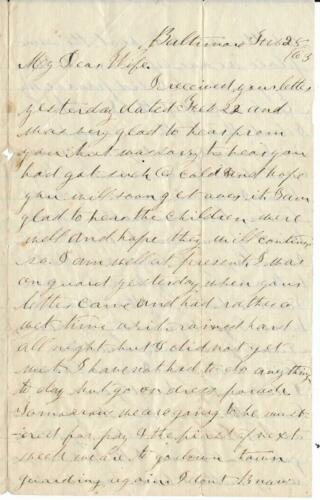 Baltimore Feb 28
/63
My Dear Wife.
I received your letter
yesterday dated Feb 22 and
was very glad to hear from
you but was sorry to hear you
had got such a cold and hope
you will soon get over it. I am
glad to hear the children were
well and hope they will continue
so. I am well at present. I was
on guard yesterday when your
letter came and had rather a
wet time of it. rained hard
all night but I did not get
wet. I have not had to do anything
to day but go on dress parade
Tomorrow we are going to be must
-ered for pay & the first of next
week we are to go down town
guarding again I dont know